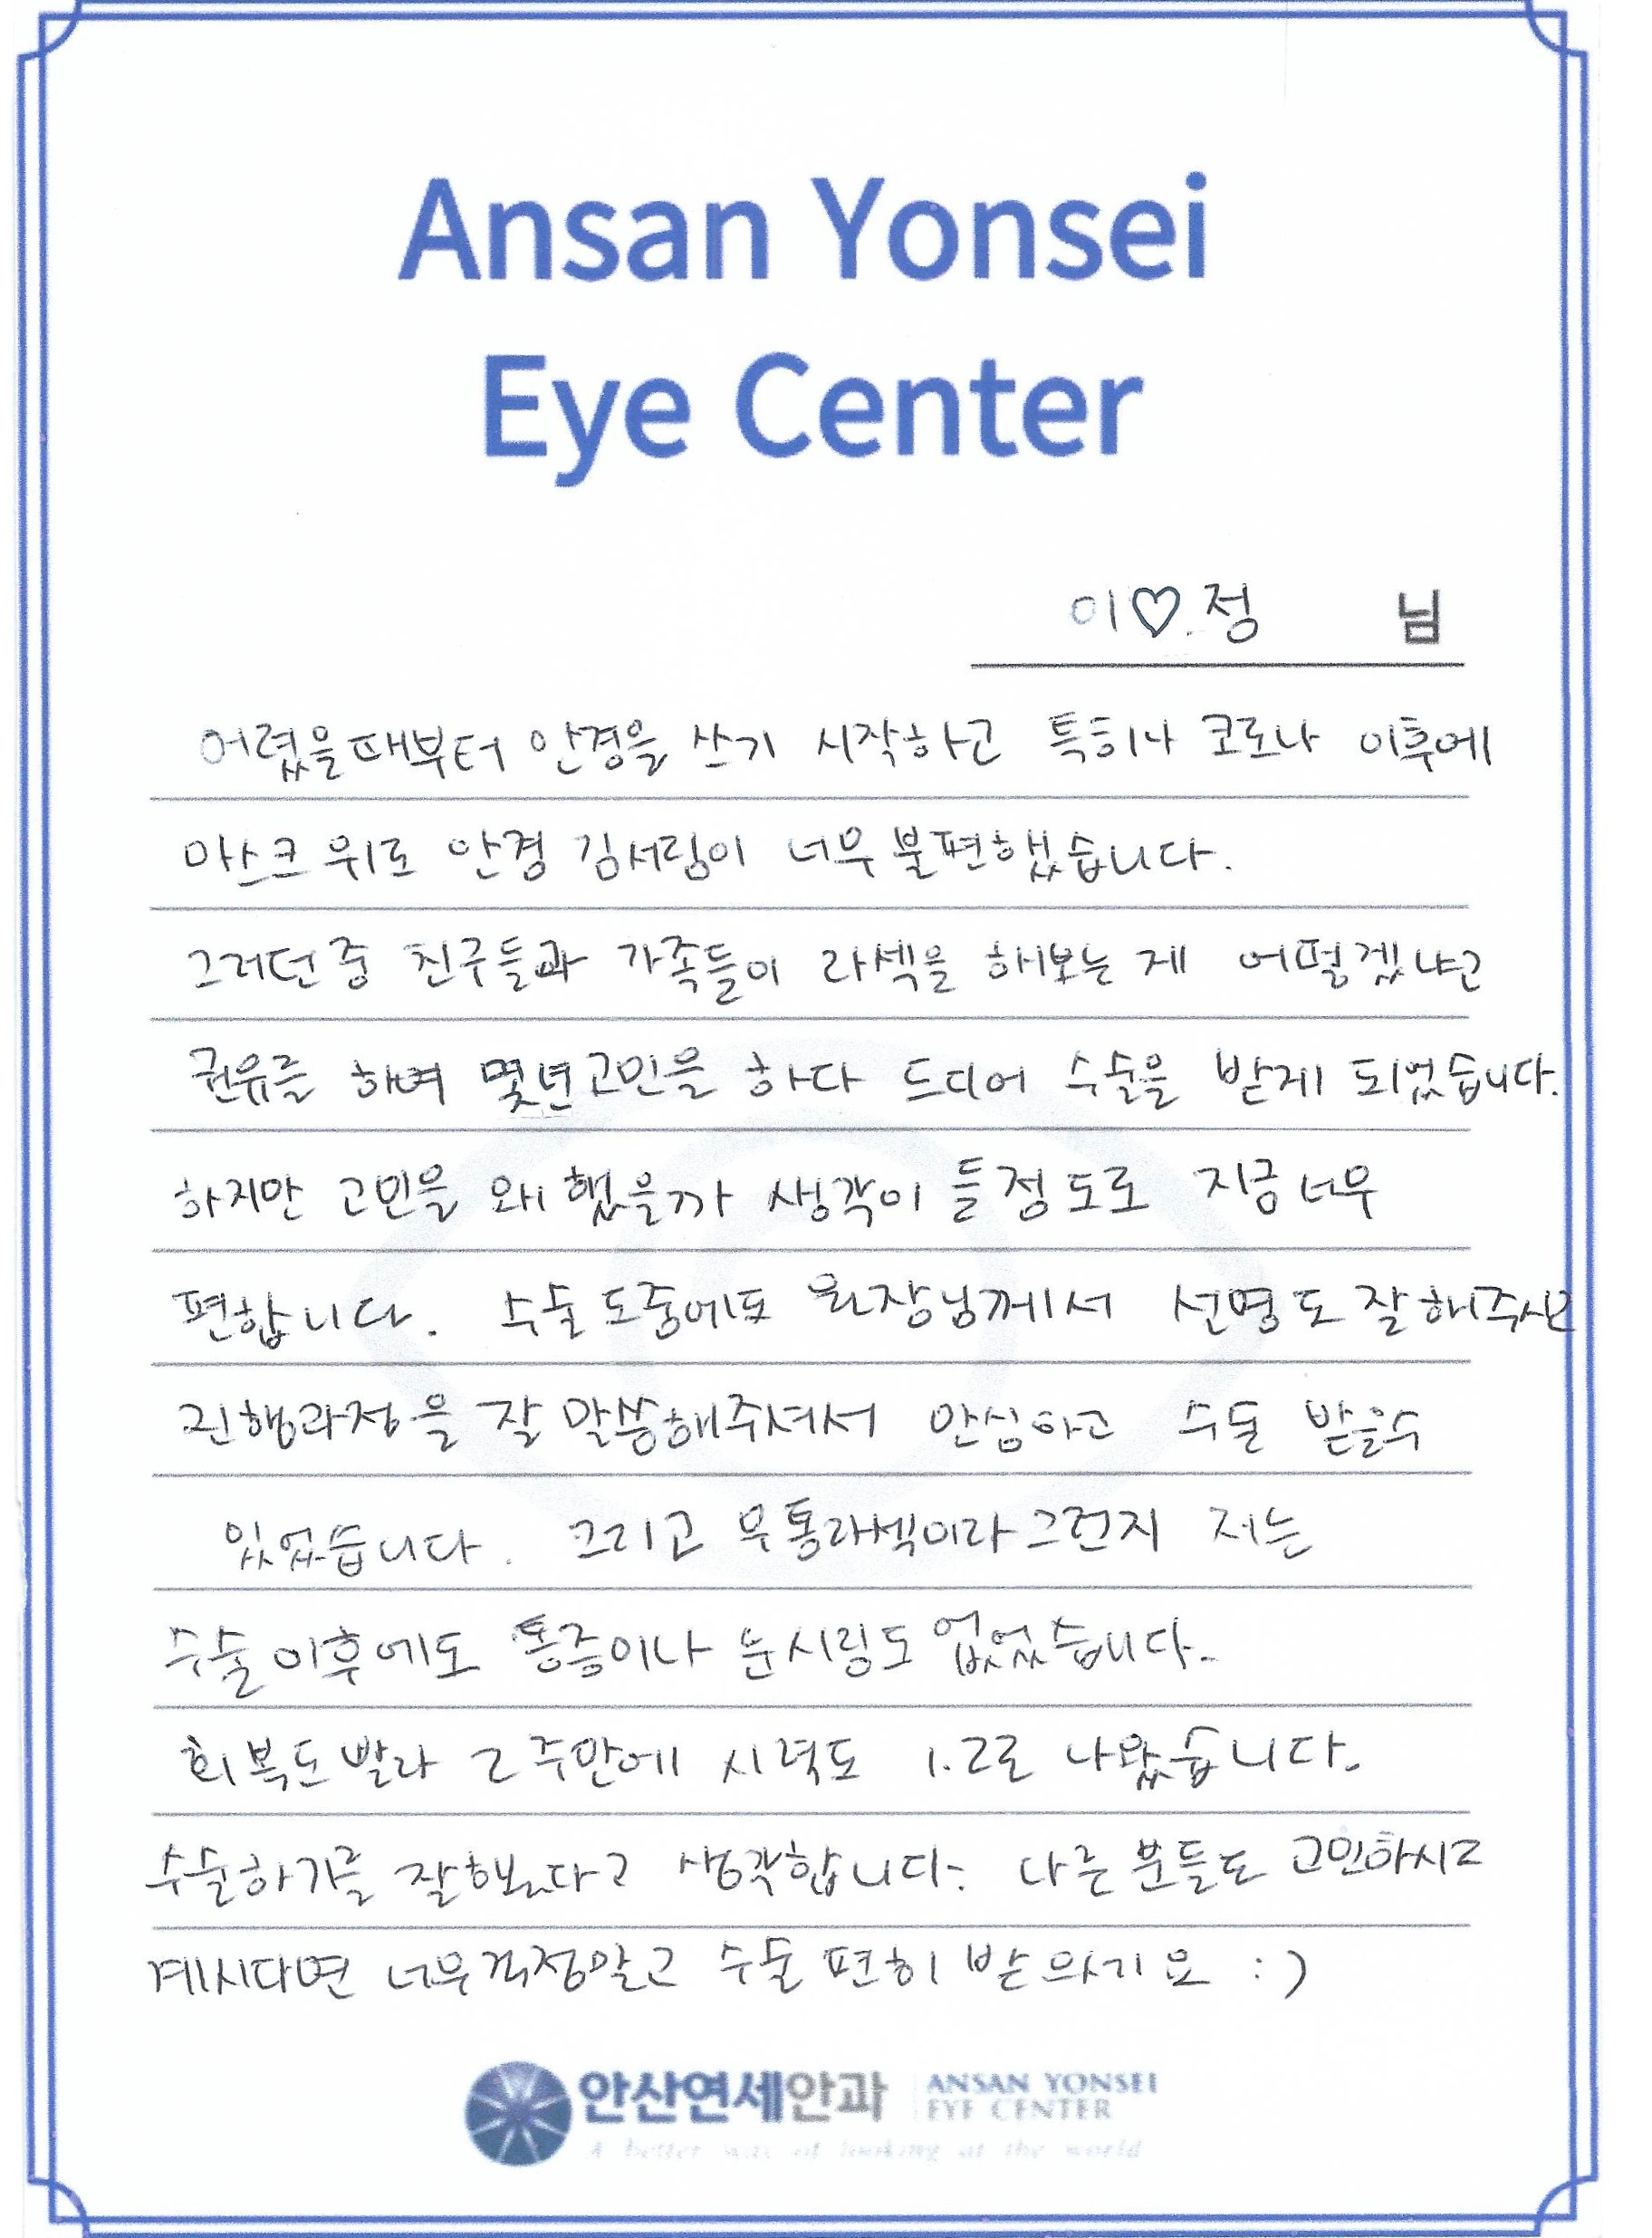 Ansan Yonsei
Eye Center
이♡정 님
어렸을때부터 안경을 쓰기 시작하고 특히나 코로나 이후에
마스크 위로 안경 김서림이 너무 불편했습니다.
그러던중 친구들과 가족들이 라섹을 해보는제 어떻겠냐고
권유를 하며 몇년고민을 하다 드디어 수술을 받게 되었습니다.
하지만 고민을 왜했을까 생각이 들정도로 지금너무
편합니다. 수술도중에도 원장님께서 설명도잘해주시고
진행과정을 잘 말씀해주셔서 안심하고 수술 받을수
있었습니다. 그리고 무통라섹이라그런지 저는
수술이후에도 통증이나 눈시림도 없었습니다.
회복도빨라 2주만에 시력도 1.2로 나왔습니다.
수술하기를 잘했다고 생각합니다. 다른분들도 고민하시고
계시다면 너무걱정말고 수술 편히 받으시기요 :)
안산연세안과 ANSAN YONSEI
EYE CENTER
A better way of looking at the world